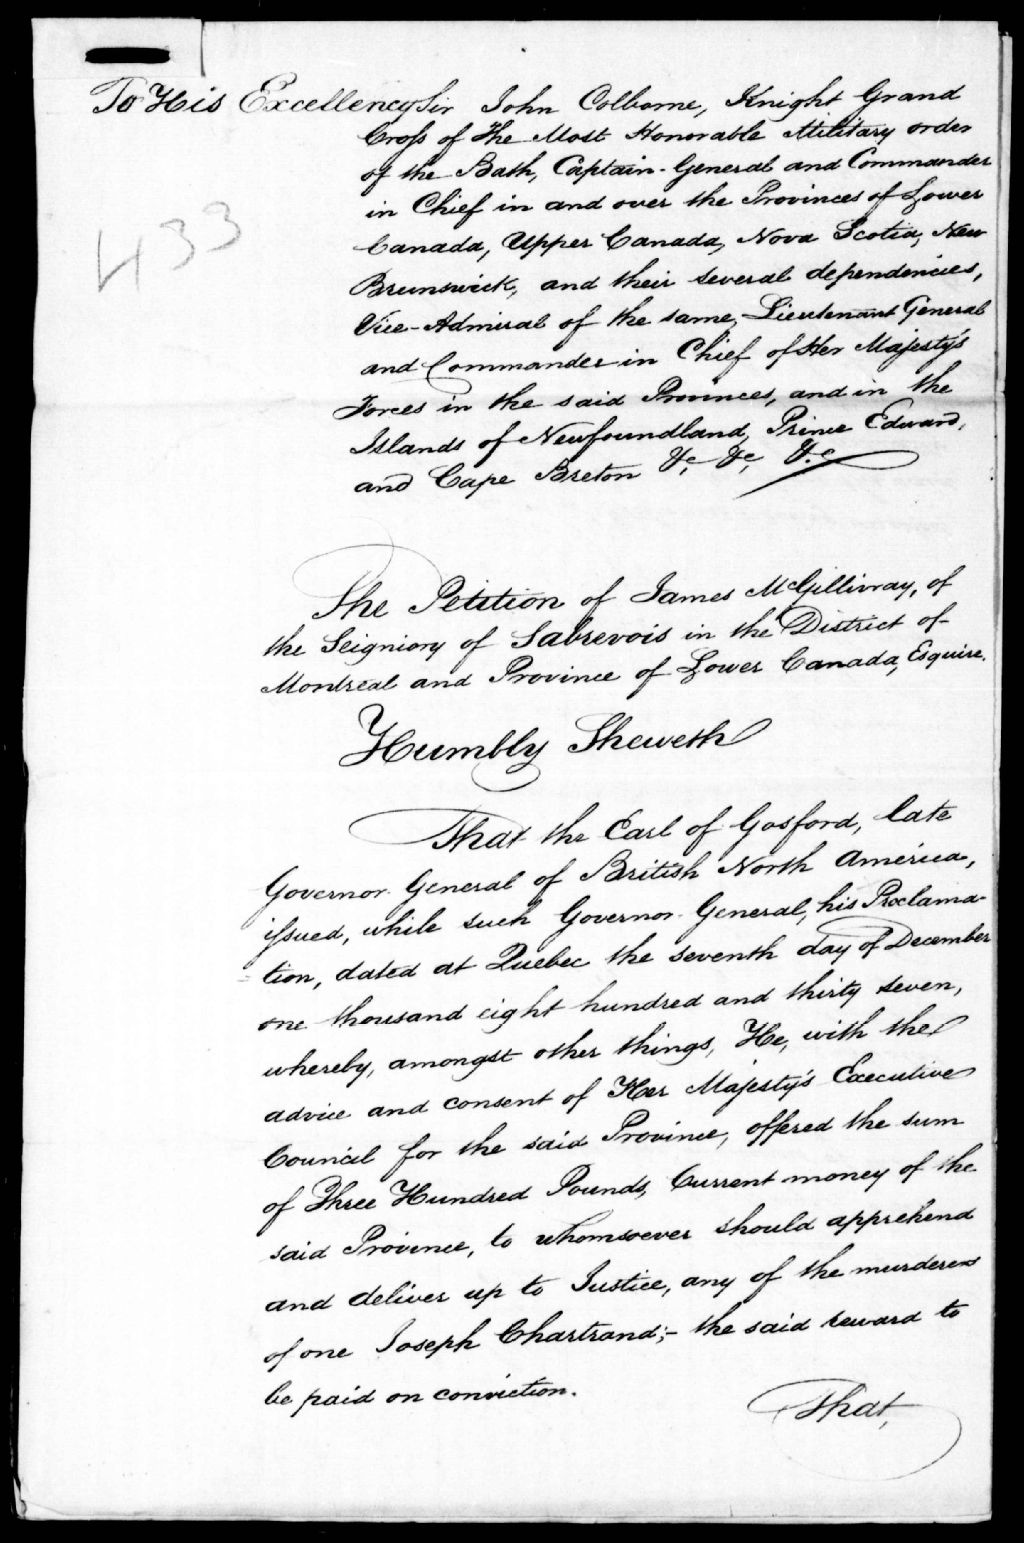 To His Excellency Sir John Colborne, Knight Grand
Cross of the Most Honorable Military order
of the Bath, Captain-General and Commander
in Chief in and over the Provinces of Lower
Canada, Upper Canada, Nova Scotia, New
Brunswick, and their several dependencies,
Vice-Admiral of the same, Lieutenant General
and Commander in Chief of Her Majesty's
Forces in the said Provinces, and in the
Islands of Newfoundland, Prince Edward,
and Cape Breton &c, &c, &c
433
The Petition of James McGillivray, of
the Seigniory of Sabrevois in the District of
Montreal and Province of Lower Canada, Esquire.
Humbly Sheweth
That the Earl of Gosford, late
Governor General of British North America,
issued, while such Governor General, his Proclama-
tion, dated at Quebec the seventh day of December
one thousand eight hundred and thirty seven,
whereby, amongst other things, He, with the
advice and consent of Her Majesty's Executive
Council for the said Province, offered the sum
of Three Hundred Pounds, Current money of the
said Province, to whomsoever should apprehend
and deliver up to Justice, any of the murderers
of one Joseph Chartrand;- the said reward to
be paid on conviction.
That,